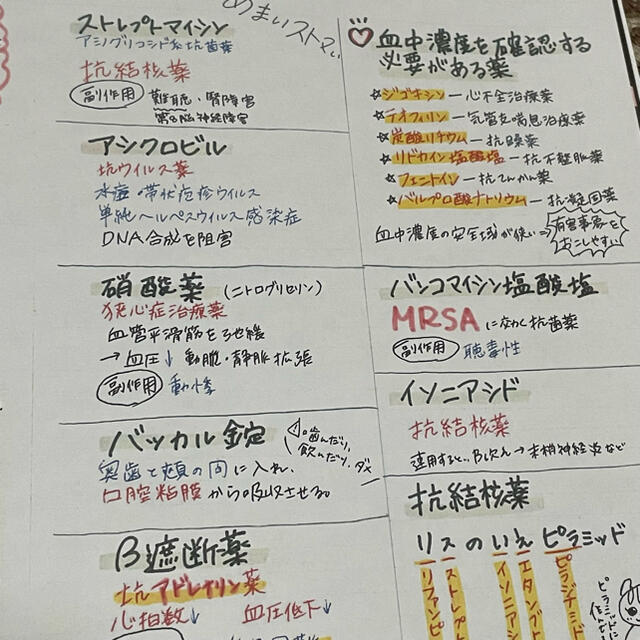 めまいストマイ
ストレプトマイシン
アミノグリコシド系抗菌薬
抗結核薬
副作用 難聴・腎障害
第8脳神経障害
アシクロビル
抗ウイルス薬
水痘・帯状疱疹ウイルス
単純ヘルペスウイルス感染症
DNA合成を阻害
硝酸薬 (ニトログリセリン)
狭心症治療薬
血管平滑筋を弛緩
→血圧↓ 動脈・静脈拡張
副作用 動悸
バッカル錠
噛んだり、
飲んだり、ダメ
奥歯と頬の間に入れ、
口腔粘膜から吸収させる。
β遮断薬
抗アドレナリン薬
心拍数↓ 血圧低下↓
血中濃度を確認する
必要がある薬
☆ジゴキシン ー 心不全治療薬
☆テオフィリン ー 気管支喘息治療薬
☆炭酸リチウム ー 抗躁薬
☆リドカイン塩酸塩 ー 抗不整脈薬
☆フェニトイン ー 抗てんかん薬
☆バルプロ酸ナトリウム ー 抗凝固薬
血中濃度の安全域が狭い⇒有害事象を
おこしやすい
バンコマイシン塩酸塩
MRSAに効く抗菌薬
副作用 聴毒性
イソニアシド
抗結核薬
連用すると、β欠乏→末梢神経炎など
抗結核薬
リスのいえピラミッド
リファンピ
ストレプト
イソニア
エタンブ
ピラジナミド
ピラミッドに